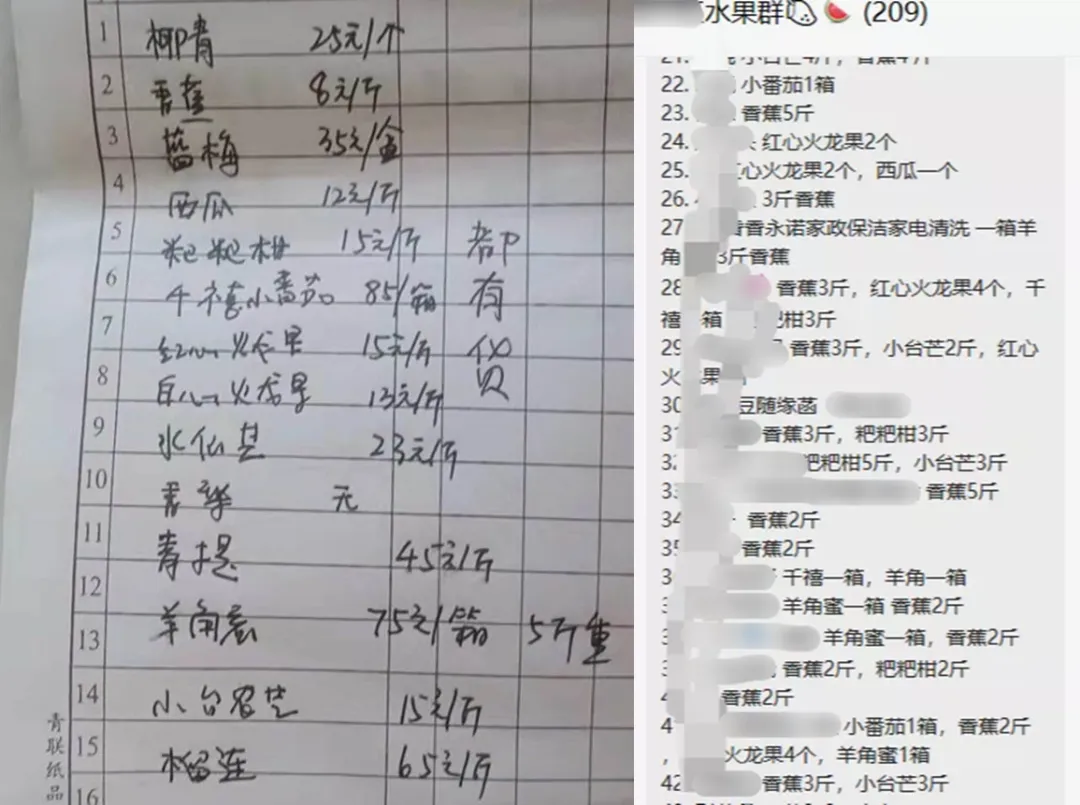 1 椰青 25元/个
2 香蕉 8元/斤
3 蓝梅 35元/盒
4 西瓜 12元/斤
5 粑粑柑 15元/斤
6 千禧小番茄 85/箱
7 红心火龙果 15元/斤
8 白心火龙果 13元/斤
都有仪贝
9 水仙芒 23元/斤
10 青苹 无
11 青提 45元/斤
12
13 羊角蜜 75元/箱 5斤重
14 小台农芒 15元/斤
15 榴连 65元/斤
16
青联纸品
水果群 (209)
21. 小台芒4斤, 香蕉4斤
22. 小番茄1箱
23. 香蕉5斤
24. 红心火龙果2个
25. 心火龙果2个，西瓜一个
26. 3斤香蕉
27 香永诺家政保洁家电清洗 一箱羊
角 3斤香蕉
28 香蕉3斤，红心火龙果4个，千
禧 箱 柑3斤
29 香蕉3斤，小台芒2斤，红心
火 果
30 豆随缘菡
31 香蕉3斤，粑粑柑3斤
32 粑粑柑5斤，小台芒3斤
33 香蕉5斤
34 香蕉2斤
35 香蕉2斤
3 千禧一箱，羊角一箱
3 羊角蜜一箱 香蕉2斤
3 羊角蜜一箱，香蕉2斤
3 香蕉2斤，粑粑柑2斤
4 香蕉2斤
4 小番茄1箱，香蕉2斤
， 火龙果4个，羊角蜜1箱
42 香蕉3斤，小台芒3斤